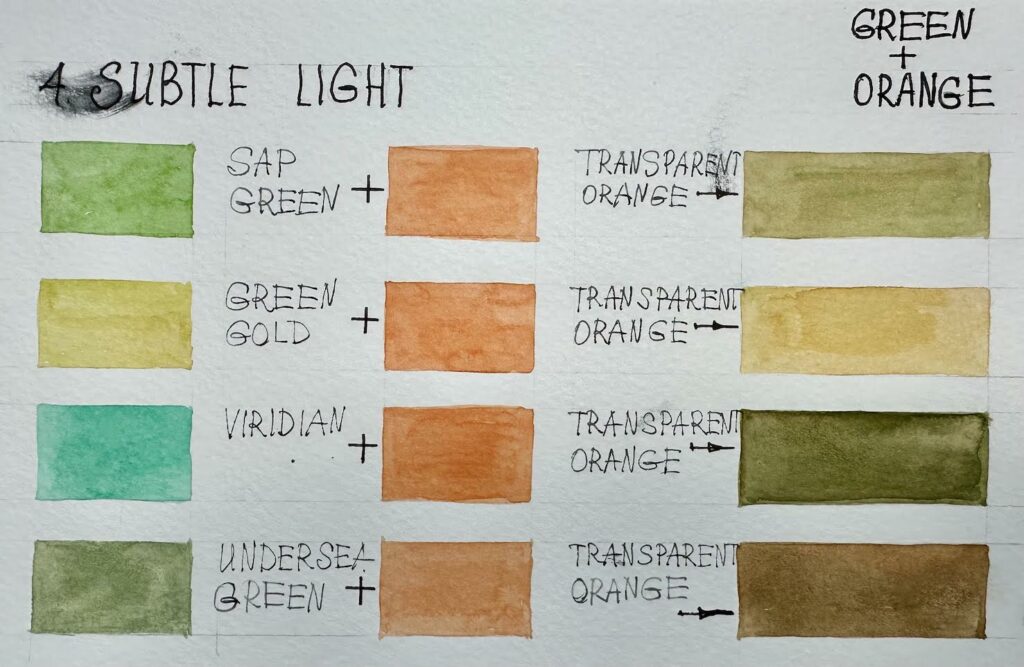 GREEN
+
ORANGE
4. SUBTLE LIGHT
SAP
GREEN +
TRANSPARENT
ORANGE →
GREEN
GOLD +
TRANSPARENT
ORANGE →
VIRIDIAN
+
TRANSPARENT
ORANGE →
UNDERSEA
GREEN +
TRANSPARENT
ORANGE
→